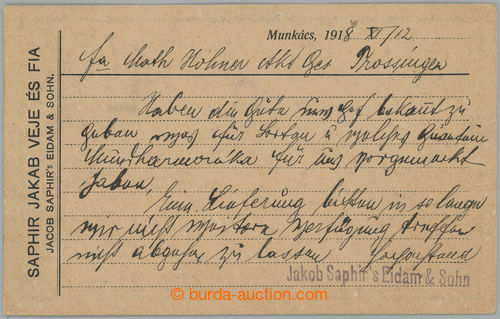 SAPHIR JAKAB VEJE ÉS FIA
JACOB SAPHIR'S EIDAM & SOHN.
Munkács, 1918 XI/12
fa Math Hohner Akt Ges Trossingen
Haben die Güte uns gef bekannt zu
geben was für Sorten u welches Quantum
Mundharmonika für uns vorgemerkt
haben,
Eine Lieferung bitten in so lange
wir nicht weitere Verfügung treffen
nicht abgehen zu lassen
Jakob Saphir's Eidam & Sohn
burda-auction.com